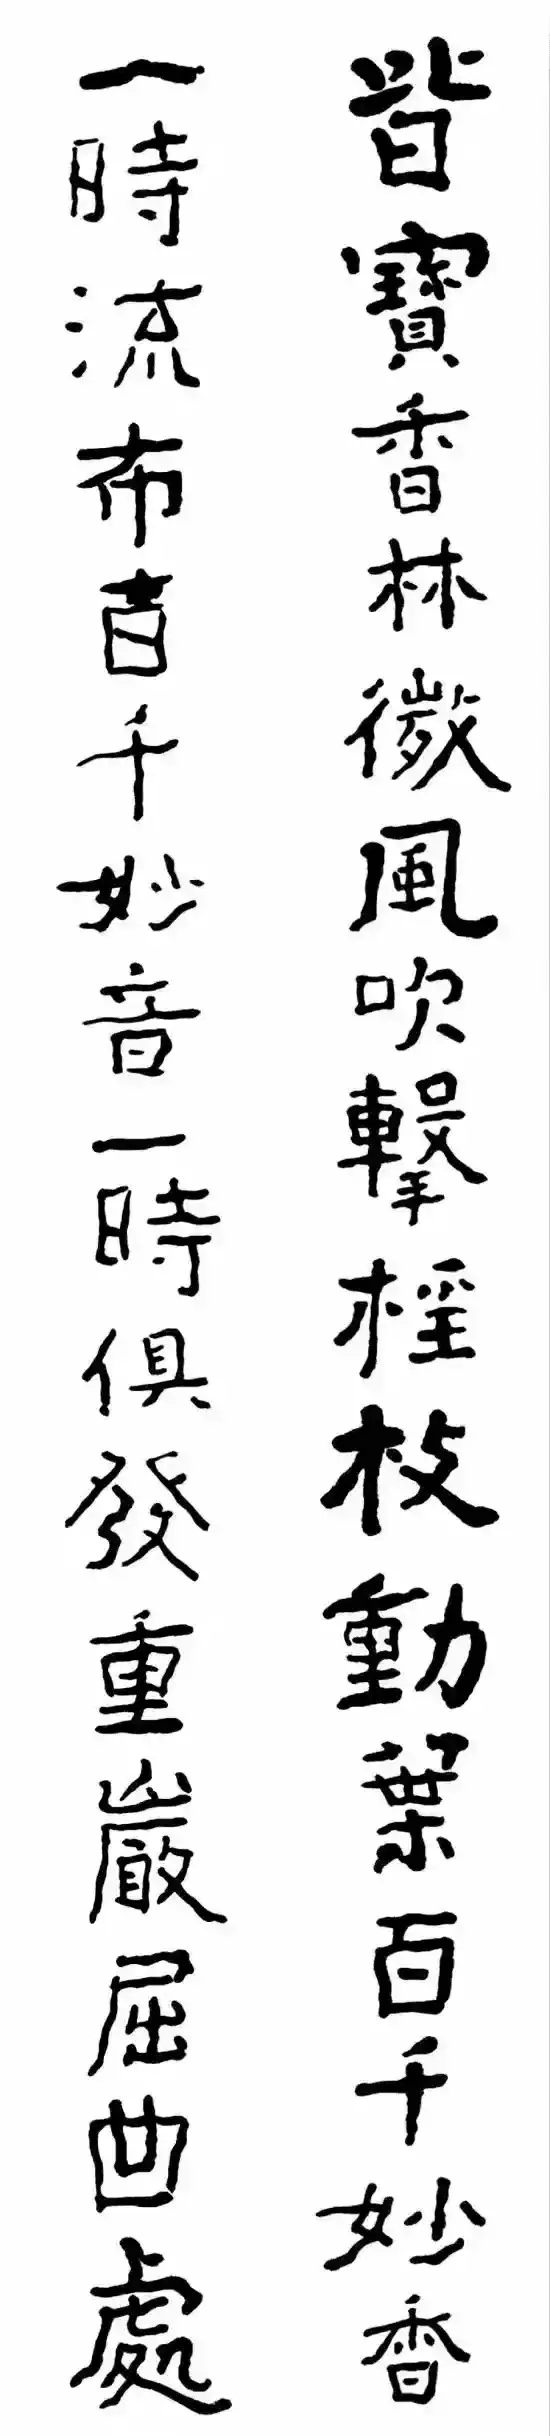 皆寶香林微風吹擊樘枝動葉百千妙香
一時流布百千妙音一時俱發重巖屈曲處